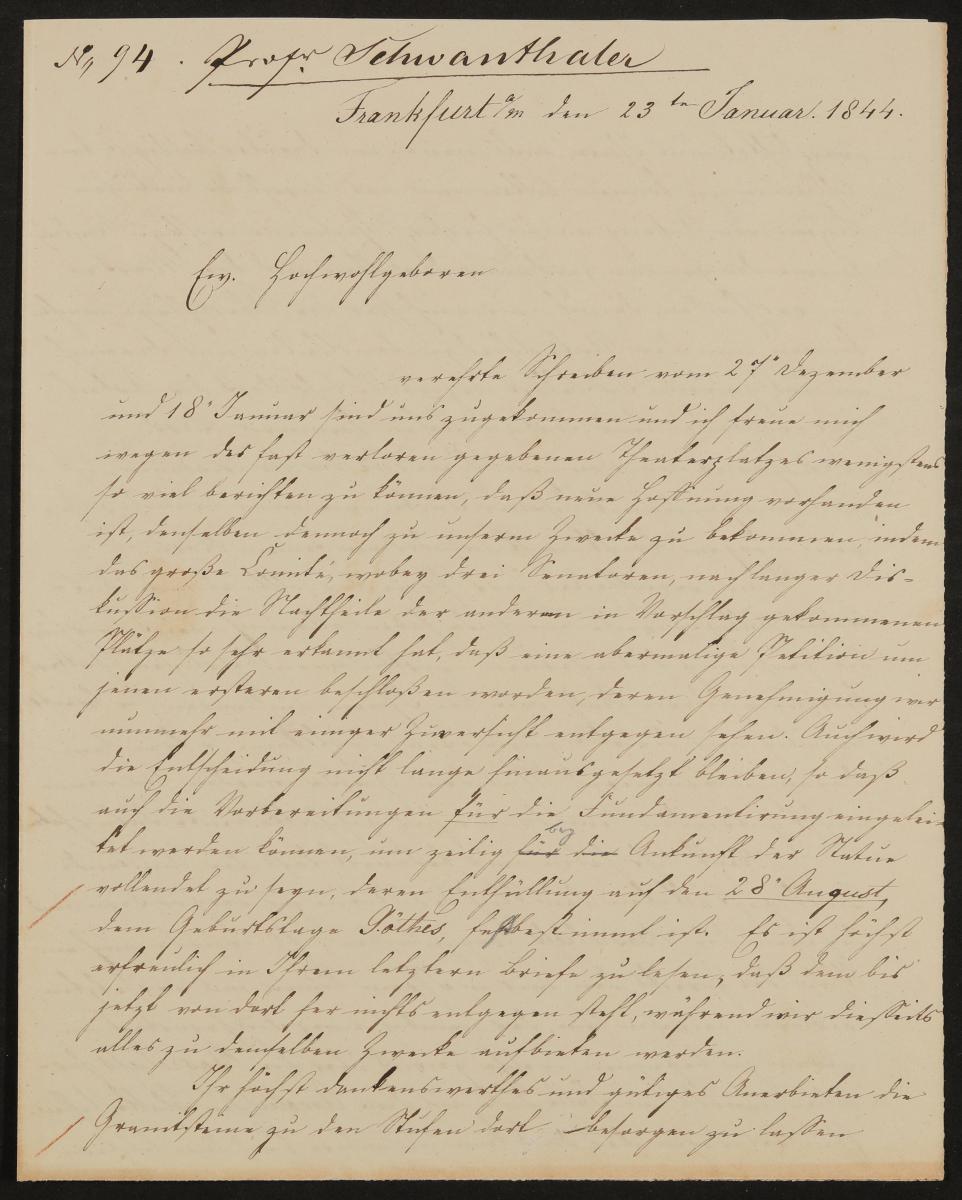 No 94. Profr. Schwanthaler
Frankfurt a/m den 23ten Januar. 1844.
Ew. Hochwohlgeboren
verehrte Schreiben vom 27n Dezember
und 18n Januar sind uns zugekommen und ich freue mich
wegen des fast verloren gegebenen Theaterplatzes wenigstens
so viel berichten zu können, daß neue Hoffnung vorhanden
ist, denselben dennoch zu unserm Zwecke zu bekommen, indem
das große Comité, wobey drei Senatoren, nach langer Dis-
kussion die Nachtheile der anderen in Vorschlag gekommenen
Plätze so sehr erkannt hat, daß eine abermalige Petition um
jenen ersteren beschloßen worden, deren Genehmigung wir
nunmehr mit einiger Zuversicht entgegen sehen. Auch wird
die Entscheidung nicht lange hinausgesetzt bleiben, so daß
auch die Vorbereitungen für die Fundamentirung eingelei-
tet werden können, um zeitig für die bey Ankunft der Statue
vollendet zu seyn, deren Enthüllung auf den 28n August,
dem Geburtstage Göthes, festbestimmt ist. Es ist höchst
erfreulich in Ihrem letztern Briefe zu lesen, daß dem bis
jetzt von dort her nichts entgegen steht, während wir diesseits
alles zu demselben Zwecke aufbieten werden.
Ihr höchst dankenswerthes und gütiges Anerbieten die
Granitsteine zu den Stufen dort besorgen zu lassen